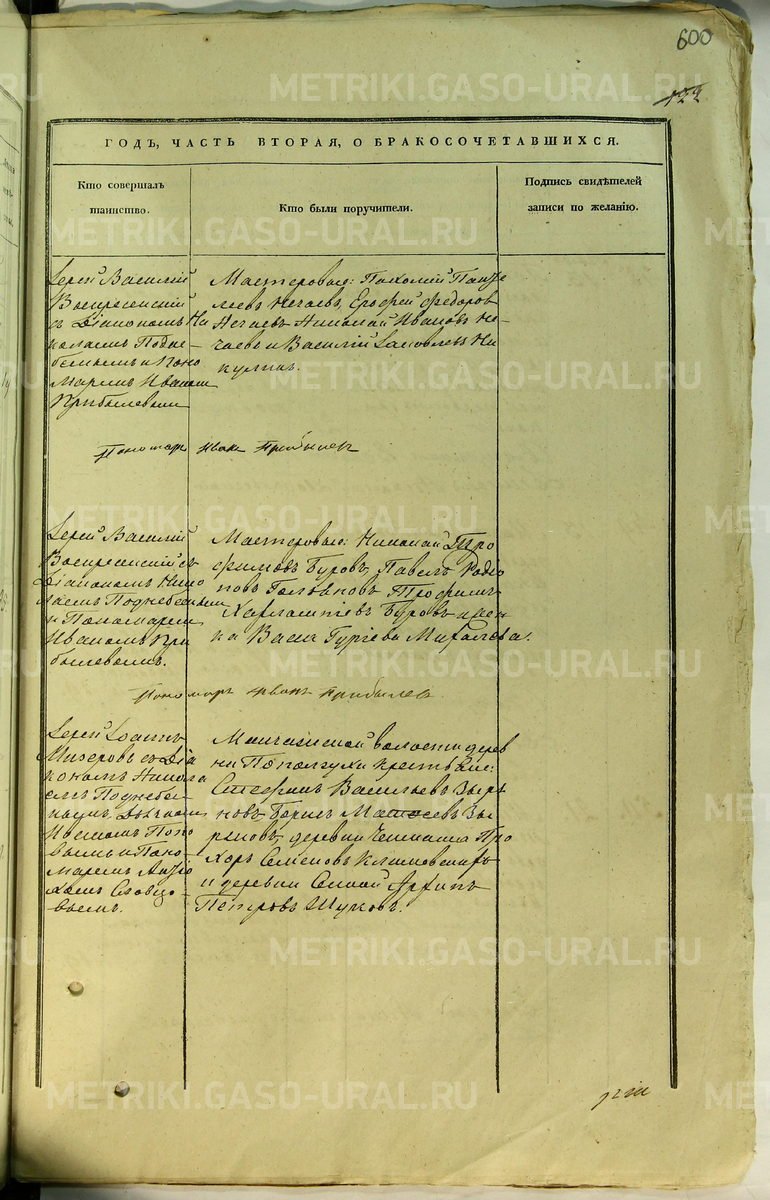 600
122
ГОДЪ, ЧАСТЬ ВТОРАЯ, О БРАКОСОЧЕТАВШИХСЯ.
Кто совершалъ таинство.
Кто были поручители.
Подпись свидѣтелей записи по желанію.
Іерей Василій
Воскресенскій
съ Діакономъ Ни
колаемъ Поднe-
беснымъ и Поно
маремъ Иваномъ
Прибылевымъ
Мастеровые: Пахомій Панте
леевъ Нечаевъ, Ерофей Федоровъ
Нечаевъ Николай Ивановъ Не-
чаевъ и Василій Іаковлевъ Ни
кулинъ.
Пономарь Иванъ Прибылевъ
Іерей Василій
Воскресенскій съ
Діакономъ Нико
лаемъ Поднебеснымъ
и Пономаремъ
Иваномъ При
былевымъ.
Мастеровые: Николай Тро
фимовъ Буровъ, Павелъ Родіо
новъ Трофимъ
Харлампіевъ Буровъ и
Пономарь Иванъ Прибылев
Іерей Іоаннъ
Мизеровъ съ Діа
кономъ Никола
емъ Поднебес-
нымъ, Дьячкомъ
Иваномъ Попо
вымъ и Поно-
маремъ
Словцо-
вымъ.
волости дерев
ни крестьяне:
Стефанъ Васильевъ Зыря
новъ, Борисъ Зы
ряновъ, деревни Про
хоръ Семеновъ
и деревни Архипъ
Петровъ Шутовъ.
METRIKI.GASO-URAL.RU